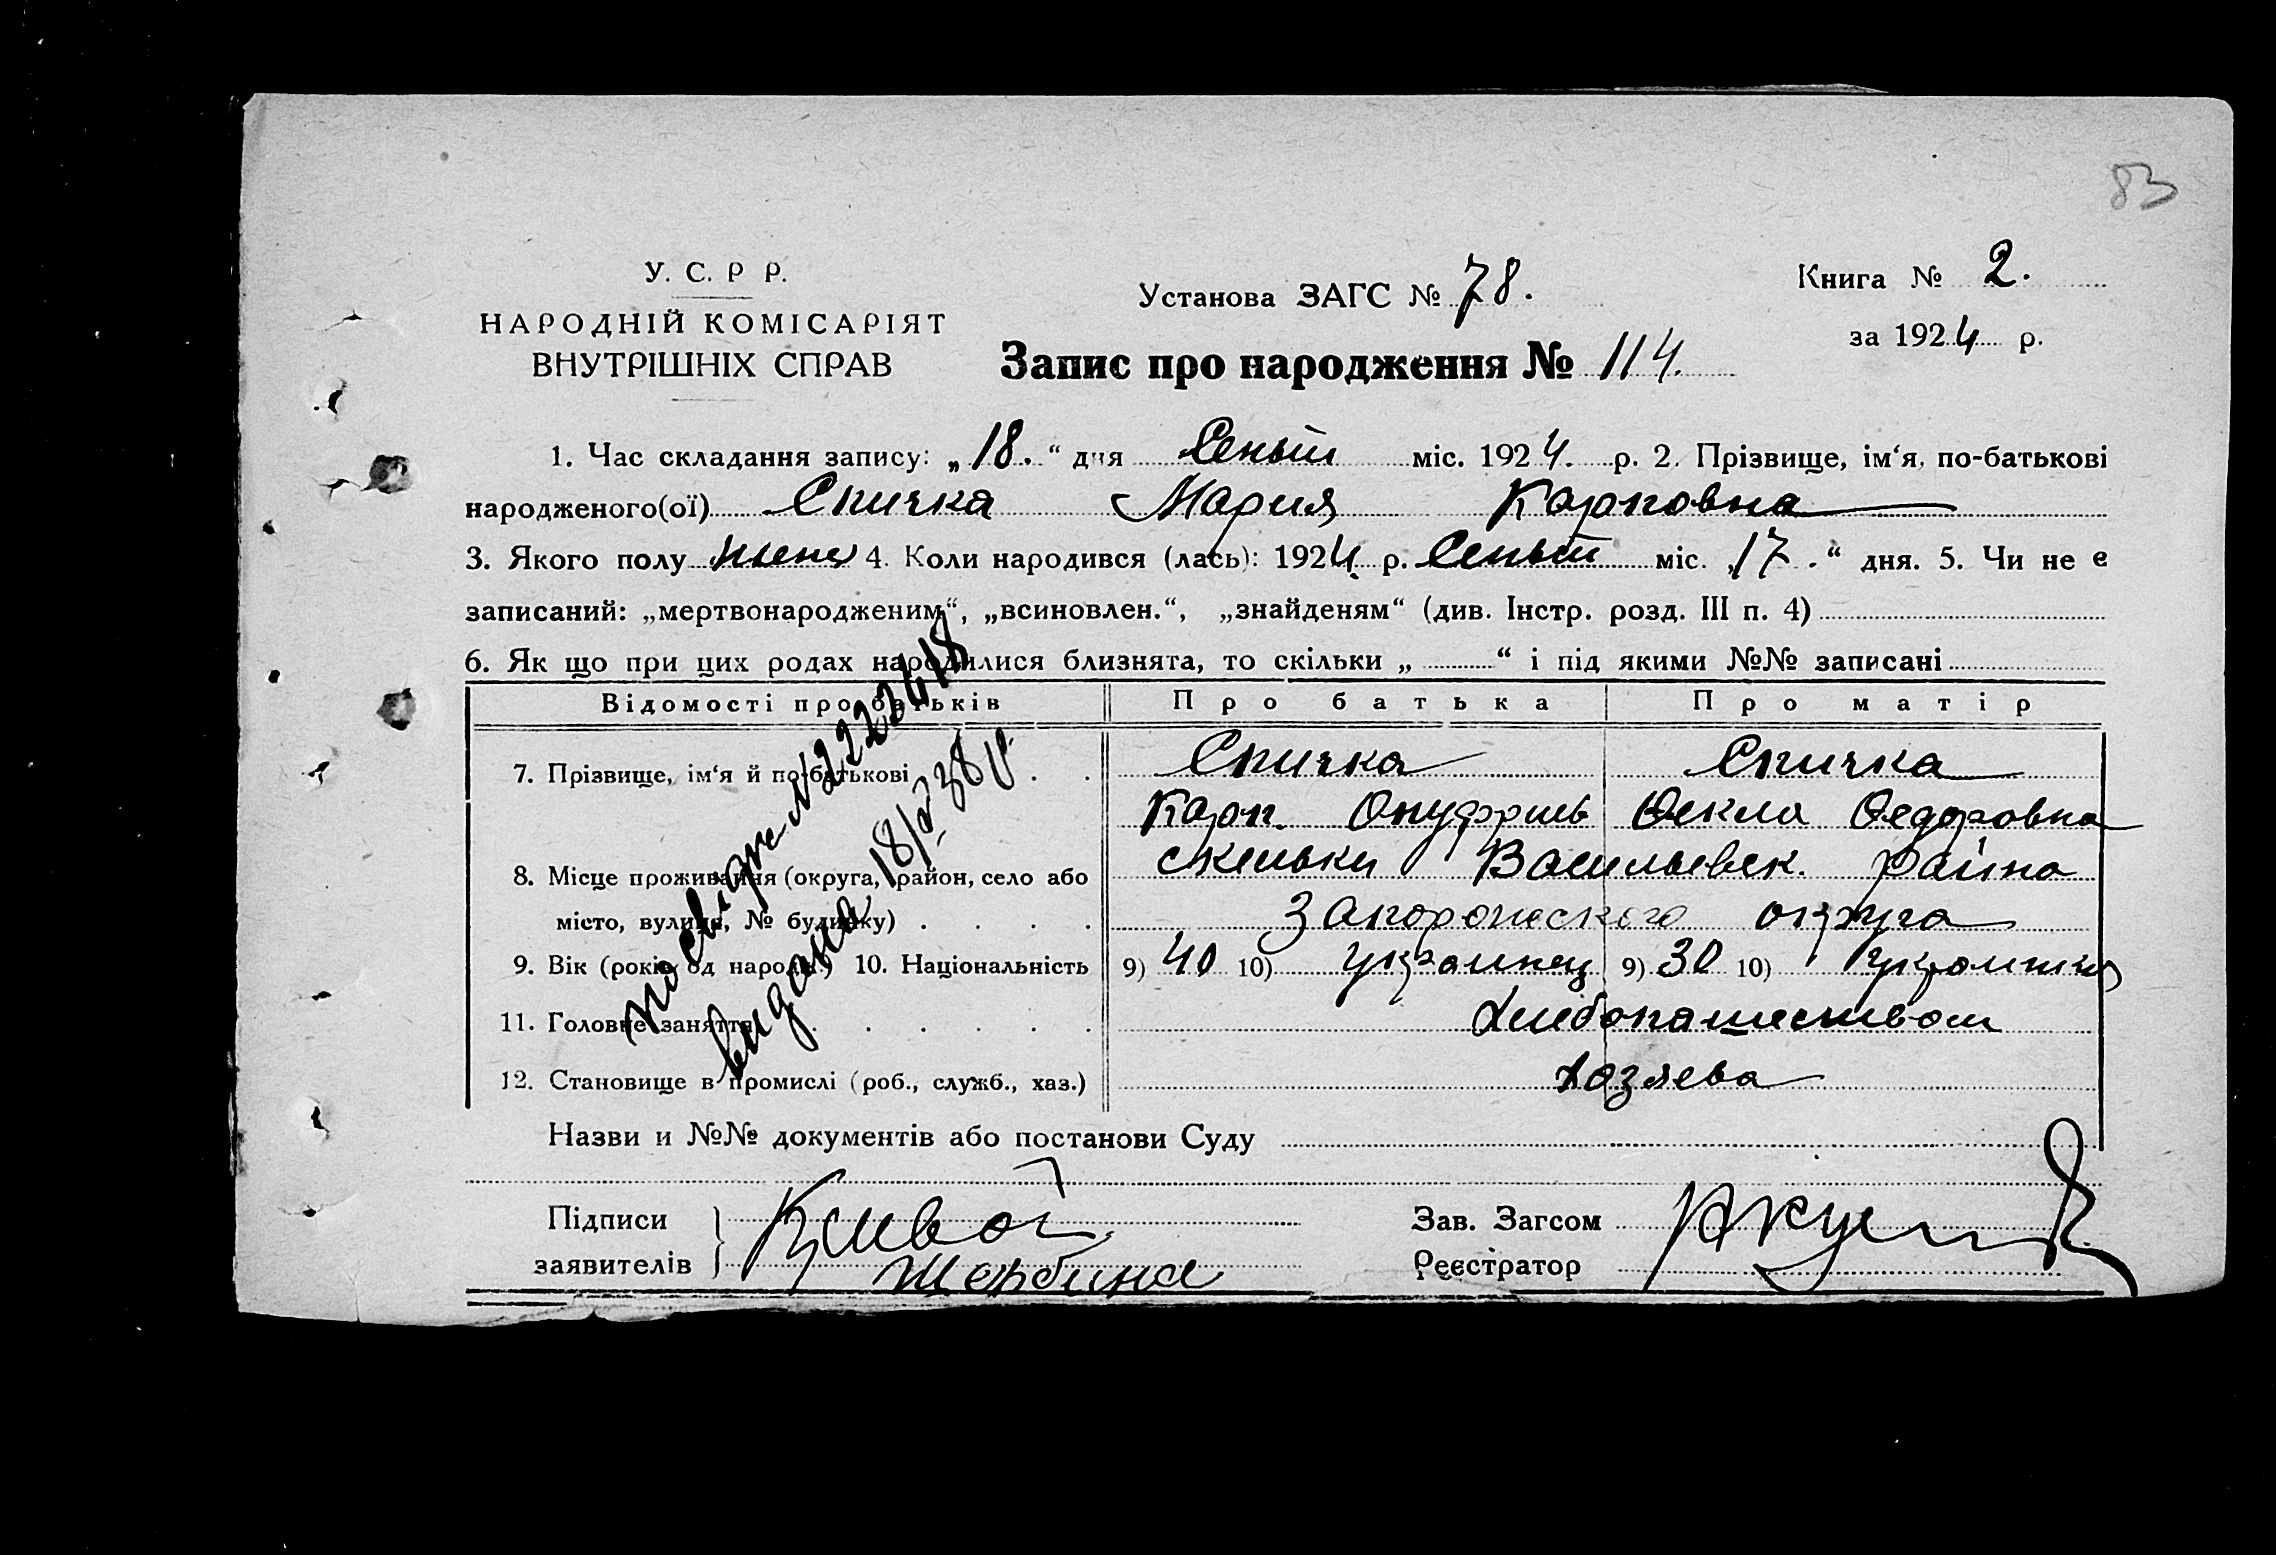 83
У. С. Р Р.
НАРОДНІЙ КОМІСАРІЯТ
ВНУТРІШНІХ СПРАВ
Установа ЗАГС № 78.
Книга № 2.
за 1924 р.
Запис про народження № 114.
1. Час складання запису: „18.“ дня Сеньт міс. 1924. р. 2. Прізвище, ім‘я, по-батькові
народженого(ої) Спичка Мария Карповна
3. Якого полу женс 4. Коли народився (лась): 1924 р. Сеньт міс. „17.“ дня. 5. Чи не є
записаний: „мертвонародженим“, „всиновлен.“, „знайденям“ (див. Інстр. розд. III п. 4)
6. Як що при цих родах народилися близнята, то скільки „ “ і під якими №№ записані
Відомості про батьків Про батька Про матір
7. Прізвище, ім‘я й по-батькові . . Спичка Спичка
Карп. Онуфриев Фекла Федоровна
8. Місце проживання (округа, район, село або скельки Васильевск. район
місто, вулиця, № будинку) . . . . Запорожского округа
9. Вік (років од народж.) 10. Національність 9) 40 10) украинец 9) 30 10) украинка
11. Головне заняття . . . . . Хлебопашеством
12. Становище в промислі (роб., служб., хаз.) хозяева
Назви и №№ документів або постанови Суду
Підписи
заявителів
Кривой
Щербина
Зав. Загсом
Реєстратор
видано 18/ 38 р.